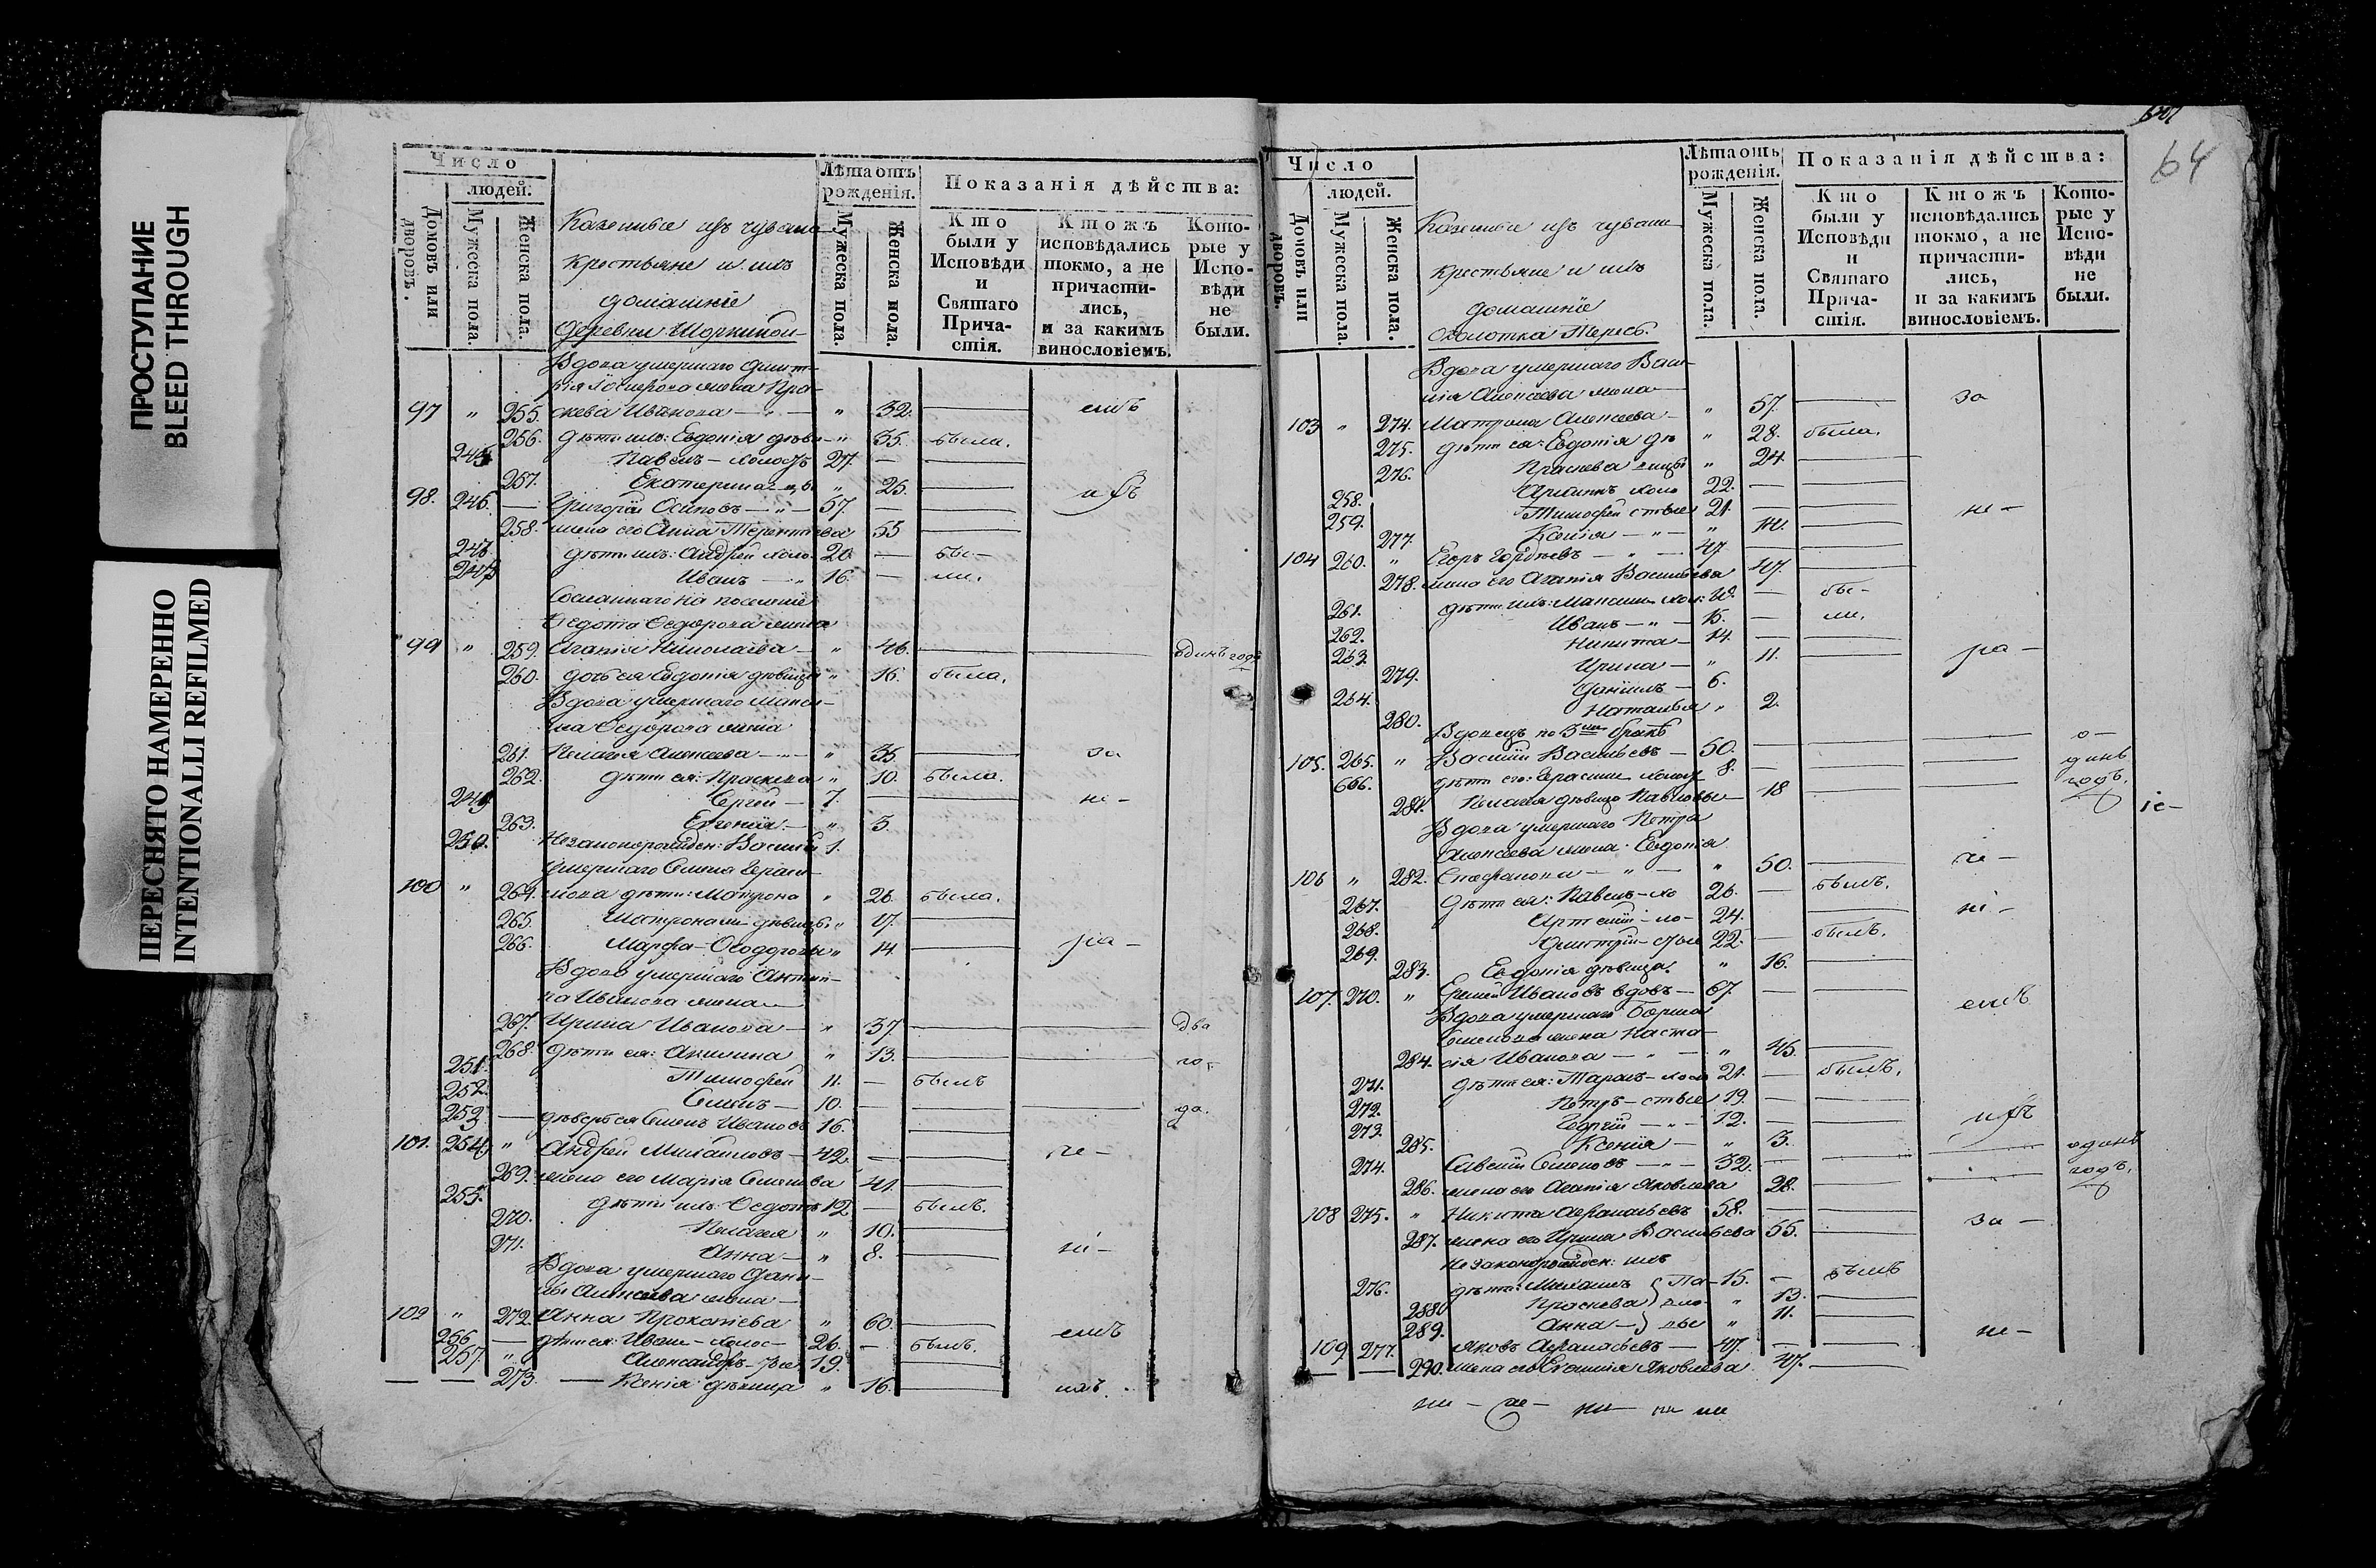 ПРОСТУПАНИЕ
BLEED THROUGH
ПЕРЕСНЯТО НАМЕРЕННО
INTENTIONALLI REFILMED
Число
людей.
Домовъ или дворовъ.
Мужеска пола.
Женска пола.
Казенные изъ чувашъ
крестьяне и ихъ
домашніе
деревни
Лѣта отъ рожденія.
Мужеска пола.
Женска пола.
Показанія дѣйства:
Кто были у Исповѣди и Святаго Причастія.
Ктожъ исповѣдались токмо, а не причастились, и за какимъ винословіемъ.
Которые у Исповѣди не были.
Вдова умершаго Дмит-
97 " 255. скева Иванова — " — " 32. —
256. дѣти ихъ: Евдокія дѣв. — " 35. была.
Павелъ — холостъ 27. —
257. Екатерина " 25. —
98. 246. — Григорій Осиповъ — " — 57. —
258. жена его Анна Терентьева 55 —
дѣти ихъ: Андрей холо 20. — бы-
Иванъ — " 16. — ли.
Сосланнаго на поселеніе
Ѳедота Ѳедорова жена
99 " 259. Агапія Николаева — " 46. — одинъ годъ
260. дочь ея Евдокія дѣвица " 16. была.
Вдова умершаго
Ѳедорова жена
261. Пелагея Алексѣева — " 35. — за
262. дѣти ея: Праскева " 10. была.
Сергѣй — 7. — не-
263. Евгенія — " 5.
250. Незаконорожден: Василій 1.
умершаго Семена Гераси-
100 " 264. мова дѣти: Матрона " 26. была.
265. Матрона дѣвицы " 17. —
266. Марфа — Ѳеодоровы " 14. — ра-
Вдова умершаго Антип-
па Иванова жена —
267. Ирина Иванова — " 37. — два
268. дѣти ея: Акилина " 13. — го-
251. Тимофей 11. — былъ
252. Семенъ — 10. —
253. — деверь ея Семенъ Ивановъ 16. — да.
101. 254. " Андрей Михайловъ — 42. — че-
269. жена его Марія Семенова 41. —
255. дѣти ихъ: Ѳедотъ 12 — былъ.
270. Пелагея " 10. —
271. Анна — " 8. — ні-
Вдова умершаго Дани-
лы Алексѣева жена —
102 " 272. Анна Прокопіева " 60. —
256. — дѣти ея: Иванъ — холос- 26. — былъ.
257. " Александръ — 19.
273. — Ксенія дѣвица " 16. —
64
Число
людей.
Домовъ или дворовъ.
Мужеска пола.
Женска пола.
Казенные изъ чувашъ
крестьяне и ихъ
домашніе
Околотка
Лѣта отъ рожденія.
Мужеска пола.
Женска пола.
Показанія дѣйства:
Кто были у Исповѣди и Святаго Причастія.
Ктожъ исповѣдались токмо, а не причастились, и за какимъ винословіемъ.
Которые у Исповѣди не были.
Вдова умершаго Васи-
лія Алексѣева жена
103 " 274. Матрона Алексѣева — " 57. — за
275. дѣти ея: Евдокія дѣ " 28. была.
276. Праскева вицы " 24. —
258. холо 22. —
259. Тимофей стые 21. — не-
277. Ксенія — " 14. —
104 260. " Егоръ Гордѣевъ — " — 47. —
278. жена его Агапія Васильева 47. —
261. дѣти ихъ: Максимъ хол: — бы-
262. Иванъ — " — 15. — ли.
263. Никита — 14. —
279. Ирина — " 11. — ра-
264. Даніилъ — 6.
280. Наталья " 2.
Вдовецъ по 3мъ бракѣ
105. 265. " Василій Васильевъ — 50. — о-
666. дѣти его: Герасимъ 8. — динъ
281. Пелагея дѣвица 18 — годъ.
іе-
Вдова умершаго Петра
Алексѣева жена Евдокія
106 " 282. Стефанова — " — " 50. — че-
267. дѣти ея: Павелъ — хо 26. — былъ.
268. Артемій — ло- 24. — ні-
269. Дмитрій — стые 22. — былъ.
283. Евдокія дѣвица. " 16. —
107. 270. " Еремей Ивановъ вдовъ — 67. —
Вдова умершаго Бориса
Семенова жена Наста-
284. сія Иванова — " — " 45. —
271. дѣти ея: Тарасъ — холо 21. — былъ.
272. Петръ — стые 19. —
273. Георгій — " — 12. —
285. Ксенія — " 3. — одинъ
274. Савелій Семеновъ — " — 32. — годъ.
286. жена его Агапія Яковлева 28. —
108 275. " Никита Аѳанасьевъ 58. — за-
287. жена его Ирина Васильева 55. —
незаконорожден: ихъ
276. дѣти: Михаилъ Па- 15. — былъ
288. Праскева вло- " 13. —
289. Анна — вы " 11. —
109. 277. Яковъ Аѳанасьевъ — 47. — не-
290. жена его Евгенія Яковлева 47. —